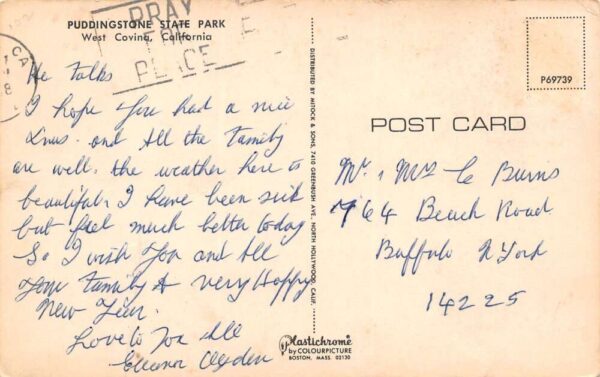 PUDDINGSTONE STATE PARK
West Covina, California
PRAY
FOR
PEACE
CA
P69739
POST CARD
He Folks
I hope you had a nice
Xmas. and All the Family
are well. the weather here is
beautiful. I have been sick
but feel much better today
So I wish You and All
Your Family A very Happy
New Year.
Love to You All
Eleanor Ogden
DISTRIBUTED BY MITOCK & SONS, 7410 GREENBUSH AVE., NORTH HOLLYWOOD, CALIF.
Plastichrome
by COLOURPICTURE
BOSTON, MASS. 02130
Mr. & Mrs C Burns
764 Beach Road
Buffalo N York
14225